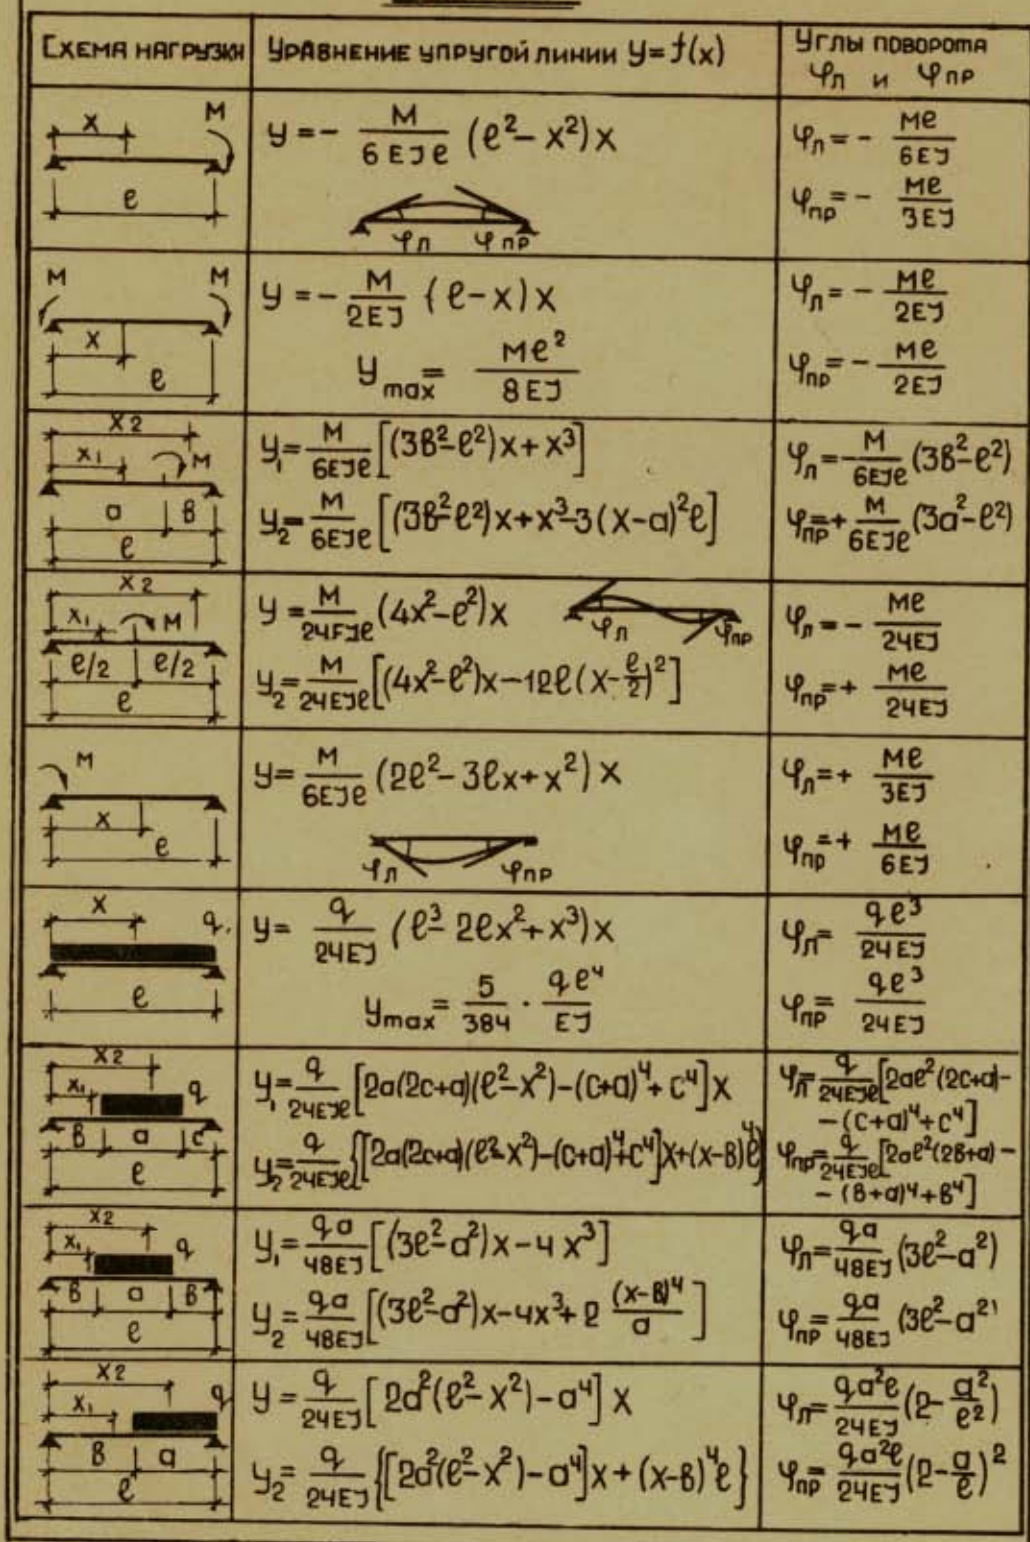 Схема нагрузки
Уравнение упругой линии y=f(x)
Углы поворота
φл и φпр
x M
l
y = - M/6EJl (l²-x²)x
φл φпр
φл = - Ml/6EJ
φпр = - Ml/3EJ
M M
x
l
y = - M/2EJ (l-x)x
ymax = Ml²/8EJ
φл = - Ml/2EJ
φпр = - Ml/2EJ
x2
x1 M
a в
l
y1 = M/6EJl [(3в²-l²)x+x³]
y2 = M/6EJl [(3в²-l²)x+x³-3(x-a)²l]
φл = - M/6EJl (3в²-l²)
φпр = + M/6EJl (3a²-l²)
x2
x1 M
l/2 l/2
l
y = M/24EJl (4x²-l²)x
φл φпр
y2 = M/24EJl [(4x²-l²)x-12l(x-l/2)²]
φл = - Ml/24EJ
φпр = + Ml/24EJ
M
x
l
y = M/6EJl (2l²-3lx+x²)x
φл φпр
φл = + Ml/3EJ
φпр = + Ml/6EJ
x q
l
y = q/24EJ (l³-2lx²+x³)x
ymax = 5/384 · ql⁴/EJ
φл = ql³/24EJ
φпр = ql³/24EJ
x2
x1 q
в a c
l
y1 = q/24EJl [2a(2c+a)(l²-x²)-(c+a)⁴+c⁴]x
y2 = q/24EJl {[2a(2c+a)(l²-x²)-(c+a)⁴+c⁴]x+(x-в)⁴l}
φл = q/24EJl [2al²(2c+a)-
-(c+a)⁴+c⁴]
φпр = q/24EJl [2al²(2в+a)-
-(в+a)⁴+в⁴]
x2
x1 q
в a в
l
y1 = qa/48EJ [(3l²-a²)x-4x³]
y2 = qa/48EJ [(3l²-a²)x-4x³+2 (x-в)⁴/a]
φл = qa/48EJ (3l²-a²)
φпр = qa/48EJ (3l²-a²)
x2
x1 q
в a
l
y = q/24EJ [2a²(l²-x²)-a⁴]x
y2 = q/24EJ {[2a²(l²-x²)-a⁴]x+(x-в)⁴l}
φл = qa²l/24EJ (2-a²/l²)
φпр = qa²l/24EJ (2-a/l)²